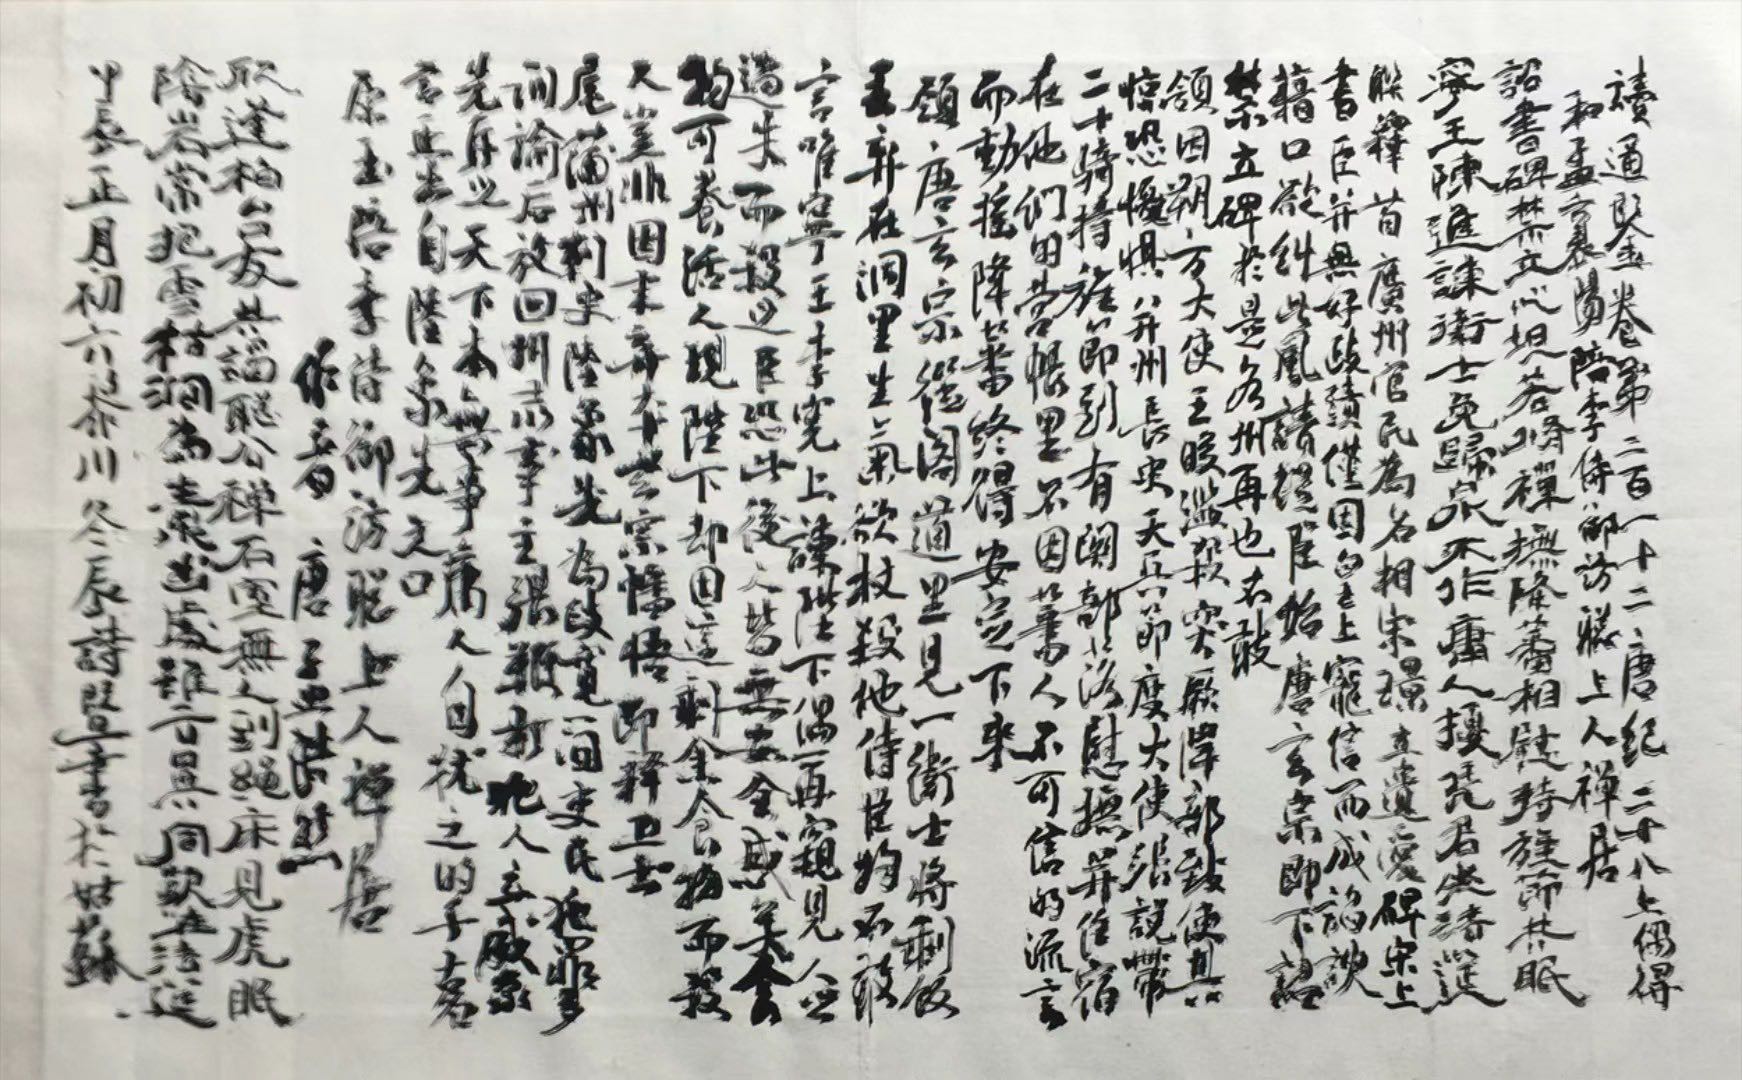 讀通鑒卷第二百一十二唐纪二十八上偶得
和孟襄陽陪李侍御訪聡上人禅居
詔書碑禁立心坦若將禪撫降蕃相慰持旌節共眠
寧王陳進諫衛士免歸泉不作庸人擾琵君坐請筵
聡釋 首廣州官民為名相宋璟立遺愛碑宋上
書臣并無好政績僅因皇上寵信而成諂諛
藉口欲糾此風請從臣始唐玄宗即下詔
禁立碑於是各州再也不敢
領因朔方大使王晙滥殺突厥降部致使其
惊恐懮惧并州長史天兵節度大使張說帶
二十騎持旌節到有關部落慰撫并住宿
在他們的營帳里不因蕃人不可信的流言
而動摇降蕃終得安定下来
頸唐玄宗從阁道里見一衛士將剩饭
丟弃在洞里生氣欲杖殺他侍臣均不敢
言唯寧王李宪上諫陛下偶一再窺見人
過失而殺之臣恐此後人皆無安全感美食
物可養活人現陛下却因這剩余食物而殺
人豈非因末弃本玄宗憣悟即释卫士
尾蒲州刺史陸象先為政寬一回吏民犯罪多
訓諭后放回州录事主張鞭打犯人立威象
先再说天下本無事庸人自扰之的千古名
言正出自陸象先之口
原玉陪李侍御訪聡上人禪居
作者 唐 孟浩然
欣逢柏台友共謁聡公禅石室無人到繩床見虎眠
陰岩常抱雪枯澗為生泉出處雖云異同歡在法筵
甲辰正月初六 川冬辰詩暨書於姑蘇